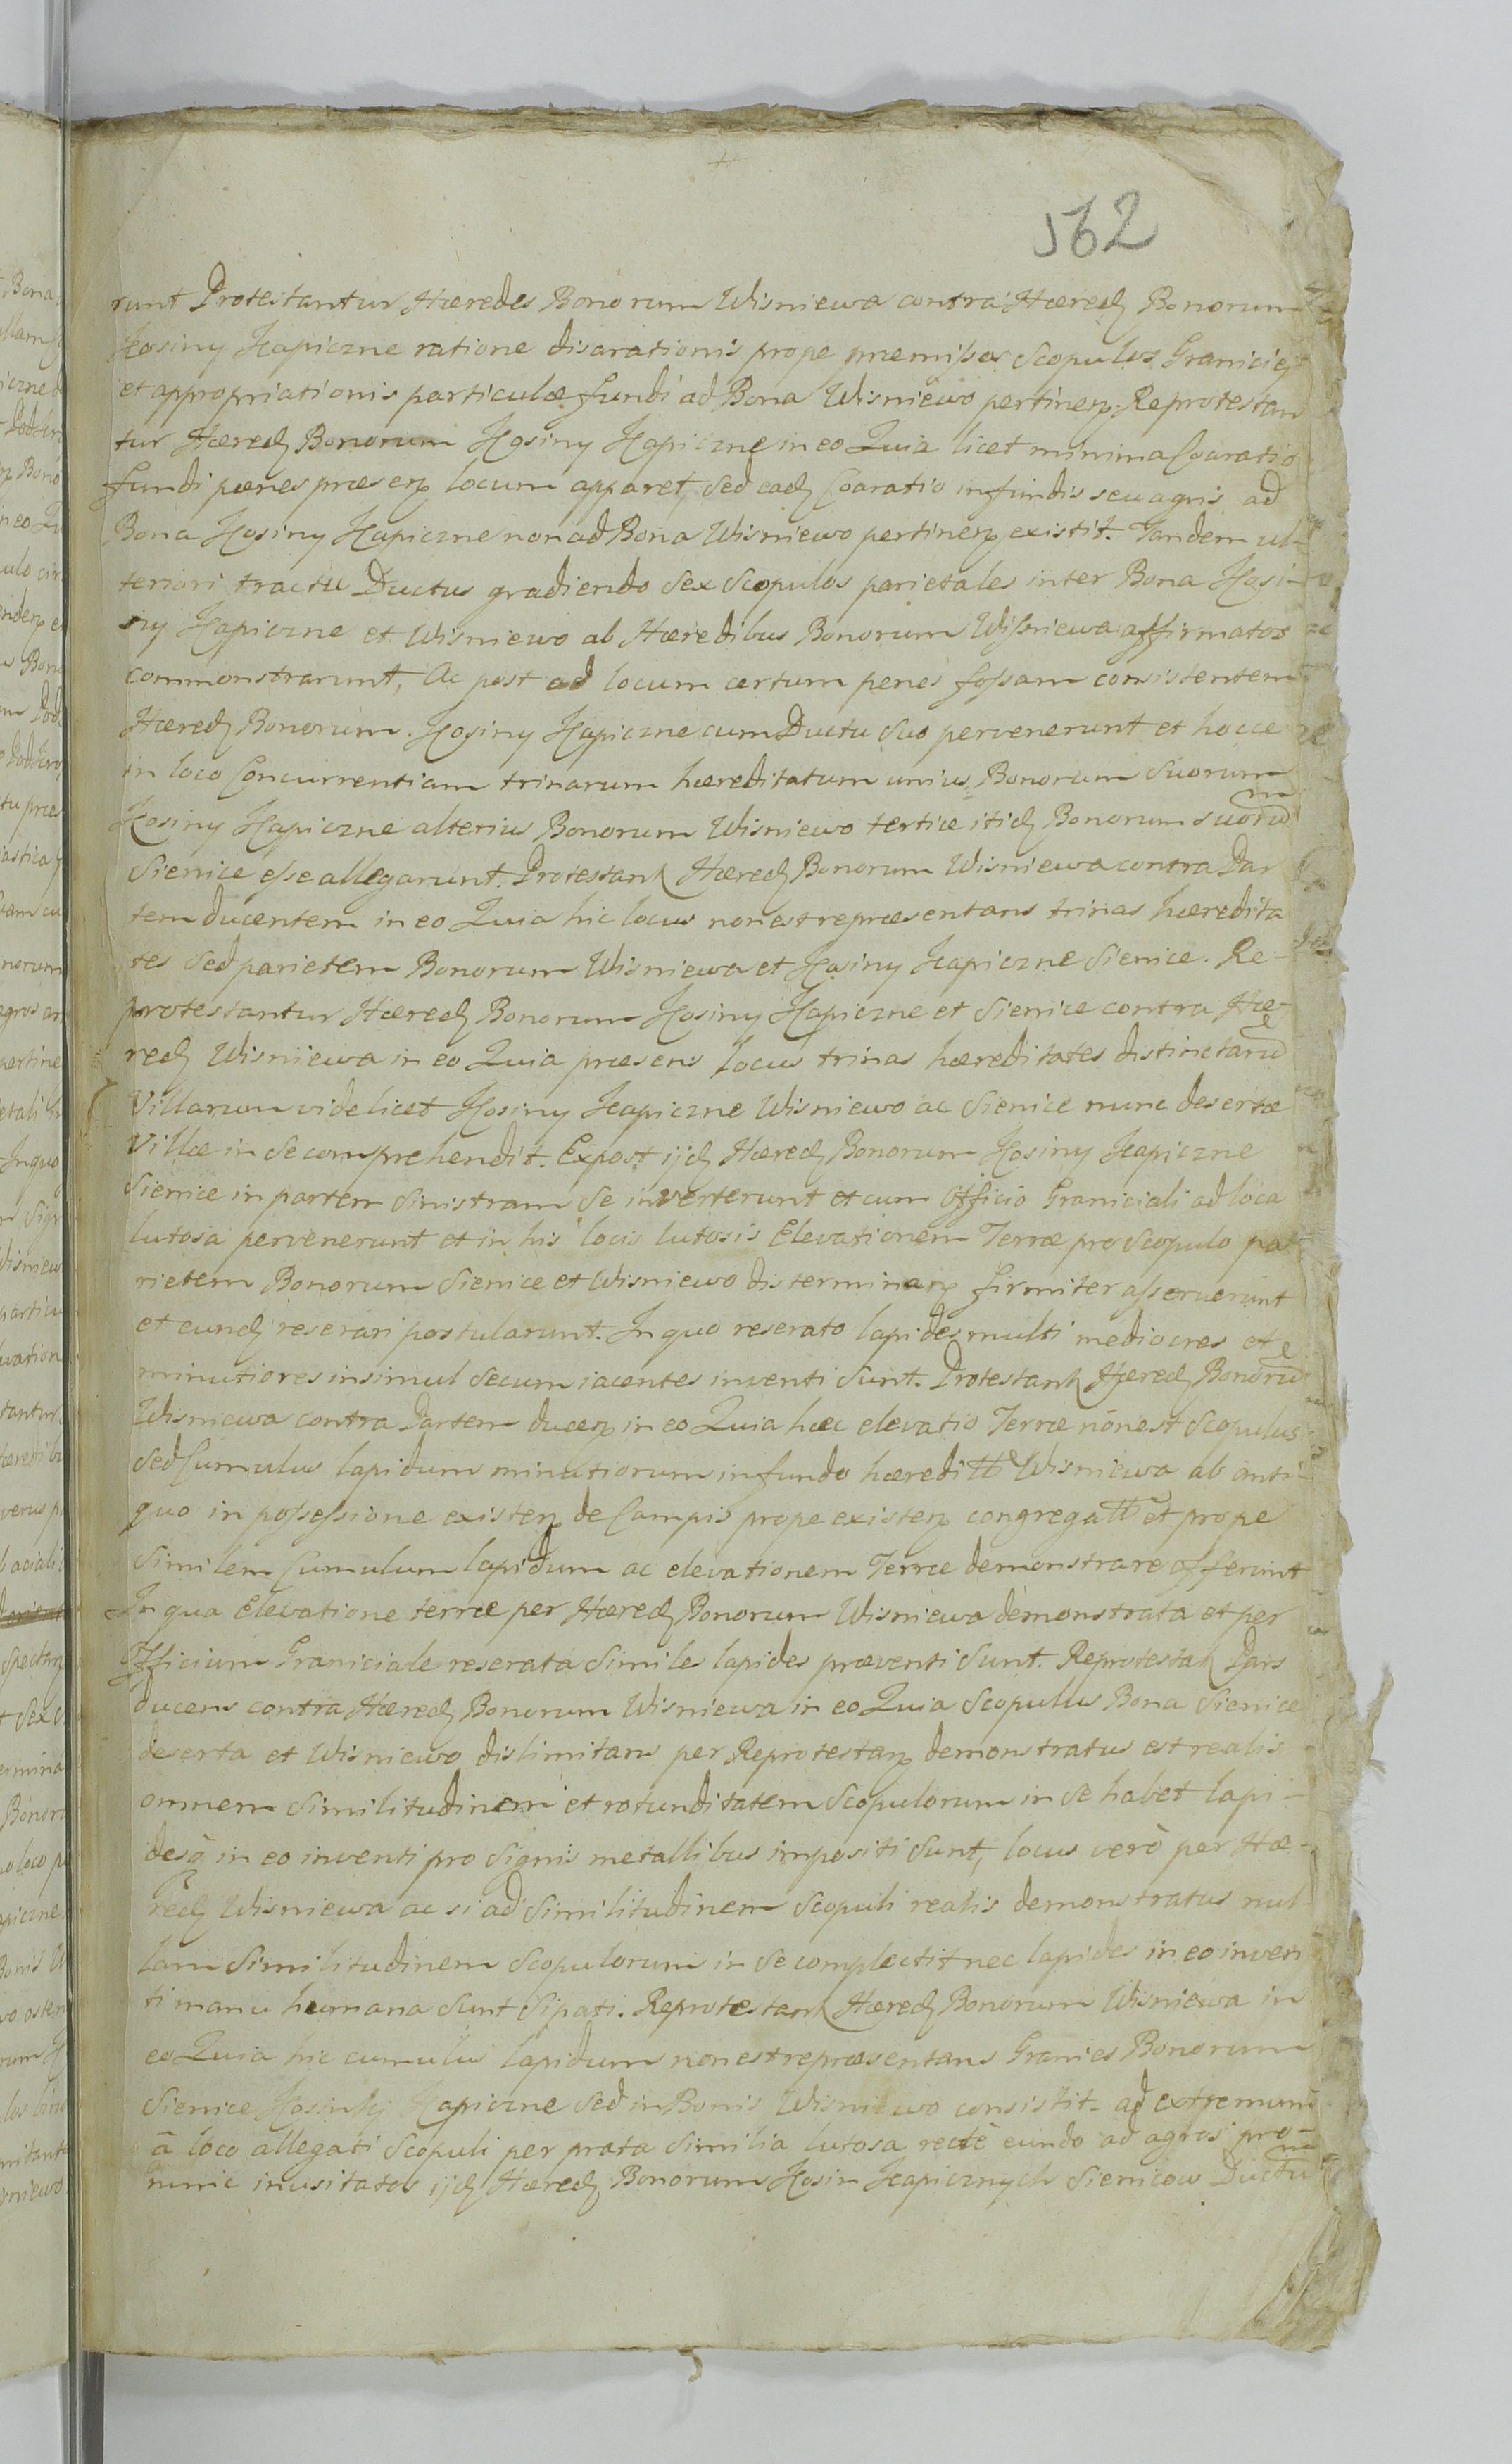 562
runt Protestantur Hæredes Bonorum Wisniewa contra Hæred Bonorum
Kosiny Kapiczne ratione disarationis prope præmissos Scopulos Granicie
et appropriationis particulæ fundi ad Bona Wisniewo pertinen. Reprotestan
tur Hæred Bonorum Kosiny Kapiczne in eo Quia licet minima Coaratio
fundi pænes præsen locum apparet, sed ead Coaratio in fundis seu agris ad
Bona Kosiny Kapiczne non ad Bona Wisniewo pertinen existit. Tandem ul-
teriori tractu Ductus gradiendo Sex Scopulos parietales inter Bona Kosi-
ny Kapiczne et Wisniewo ab Hæredibus Bonorum Wissniewa affirmatos
commonstrarunt, Ac post ad locum certum penes fossam consistentem
Hæred Bonorum Kosiny Kapiczne cum Ductu Suo pervenerunt et hocce
in loco Concurrentiam trinarum hæreditatum unius Bonorum Suorum
Kosiny Kapiczne alterius Bonorum Wisniewo tertiæ itid Bonorum suorum
Sienice esse allegarunt. Protestant Hæred Bonorum Wisniewa contra Par
tem ducentem in eo Quia hic locus non est repræsentans trinas hæredita
tes Sed parietem Bonorum Wisniewa et Kosiny Kapiczne Sienice. Re-
protestantur Hæred Bonorum Kosiny Kapiczne et Sienice contra Hæ-
red Wisniewa in eo Quia præsens locus trinas hæreditates distinctaru
Villarum videlicet Kosiny Kapiczne Wisniewo ac Sienice nunc desertæ
Villæ in Se comprehendit. Expost ijd Hæred Bonorum Kosiny Kapiczne
Sienice in partem Sinistram Se inverterunt et cum Officio Graniciali ad loca
lutosa pervenerunt et in his locis lutosis Elevationem Terræ pro Scopulo pa-
rietem Bonorum Sienice et Wisniewo disterminan firmiter asseruerunt
et eund reserari postularunt. In quo reserato lapides multi mediocres et
minutiores insimul Secum iacentes inventi Sunt. Protestant Hæred Bonoru
Wisniewa contra Partem ducen in eo Quia hæc elevatio Terræ nonest Scopulus
Sed Cumulus lapidum minutiorum in fundo hæreditt Wisniewa ab anti-
quo in possessione existen de Campis prope existen congregatt et prope
Similem Cumulum lapidum ac elevationem Terræ demonstrare offerunt
In qua Elevatione terræ per Hæred Bonorum Wisniewa demonstrata et per
Officium Graniciale reserata Similes lapides præventi Sunt. Reprotestat Pars
ducens contra Hæred Bonorum Wisniewa in eo Quia Scopulus Bona Sienice
deserta et Wisniewo dislimitans per Reprotestan demonstratus est realis
omnem Similitudinem et rotunditatem Scopulorum in Se habet lapi-
desq in eo inventi pro Signis metallibus impositi Sunt, locus verò per Hæ-
red Wisniewa ac si ad Similitudinem Scopuli realis demonstratus nul
lam Similitudinem Scopulorum in Se complectit nec lapides in eo inven
ti manu humana Sunt Sipati. Reprotestant Hæred Bonorum Wisniewa in
eo Quia hic cumulus lapidum non est repræsentans Granies Bonorum
Sienice Kosinsky Kapiczne Sed in Bonis Wisniewo consistit. ad extremum
â loco allegati Scopuli per prata Similia lutosa rectè eundo ad agros pro
nunc inusitatos ijd Hæred Bonorum Kosin Kapicznych Sienicow Ductum